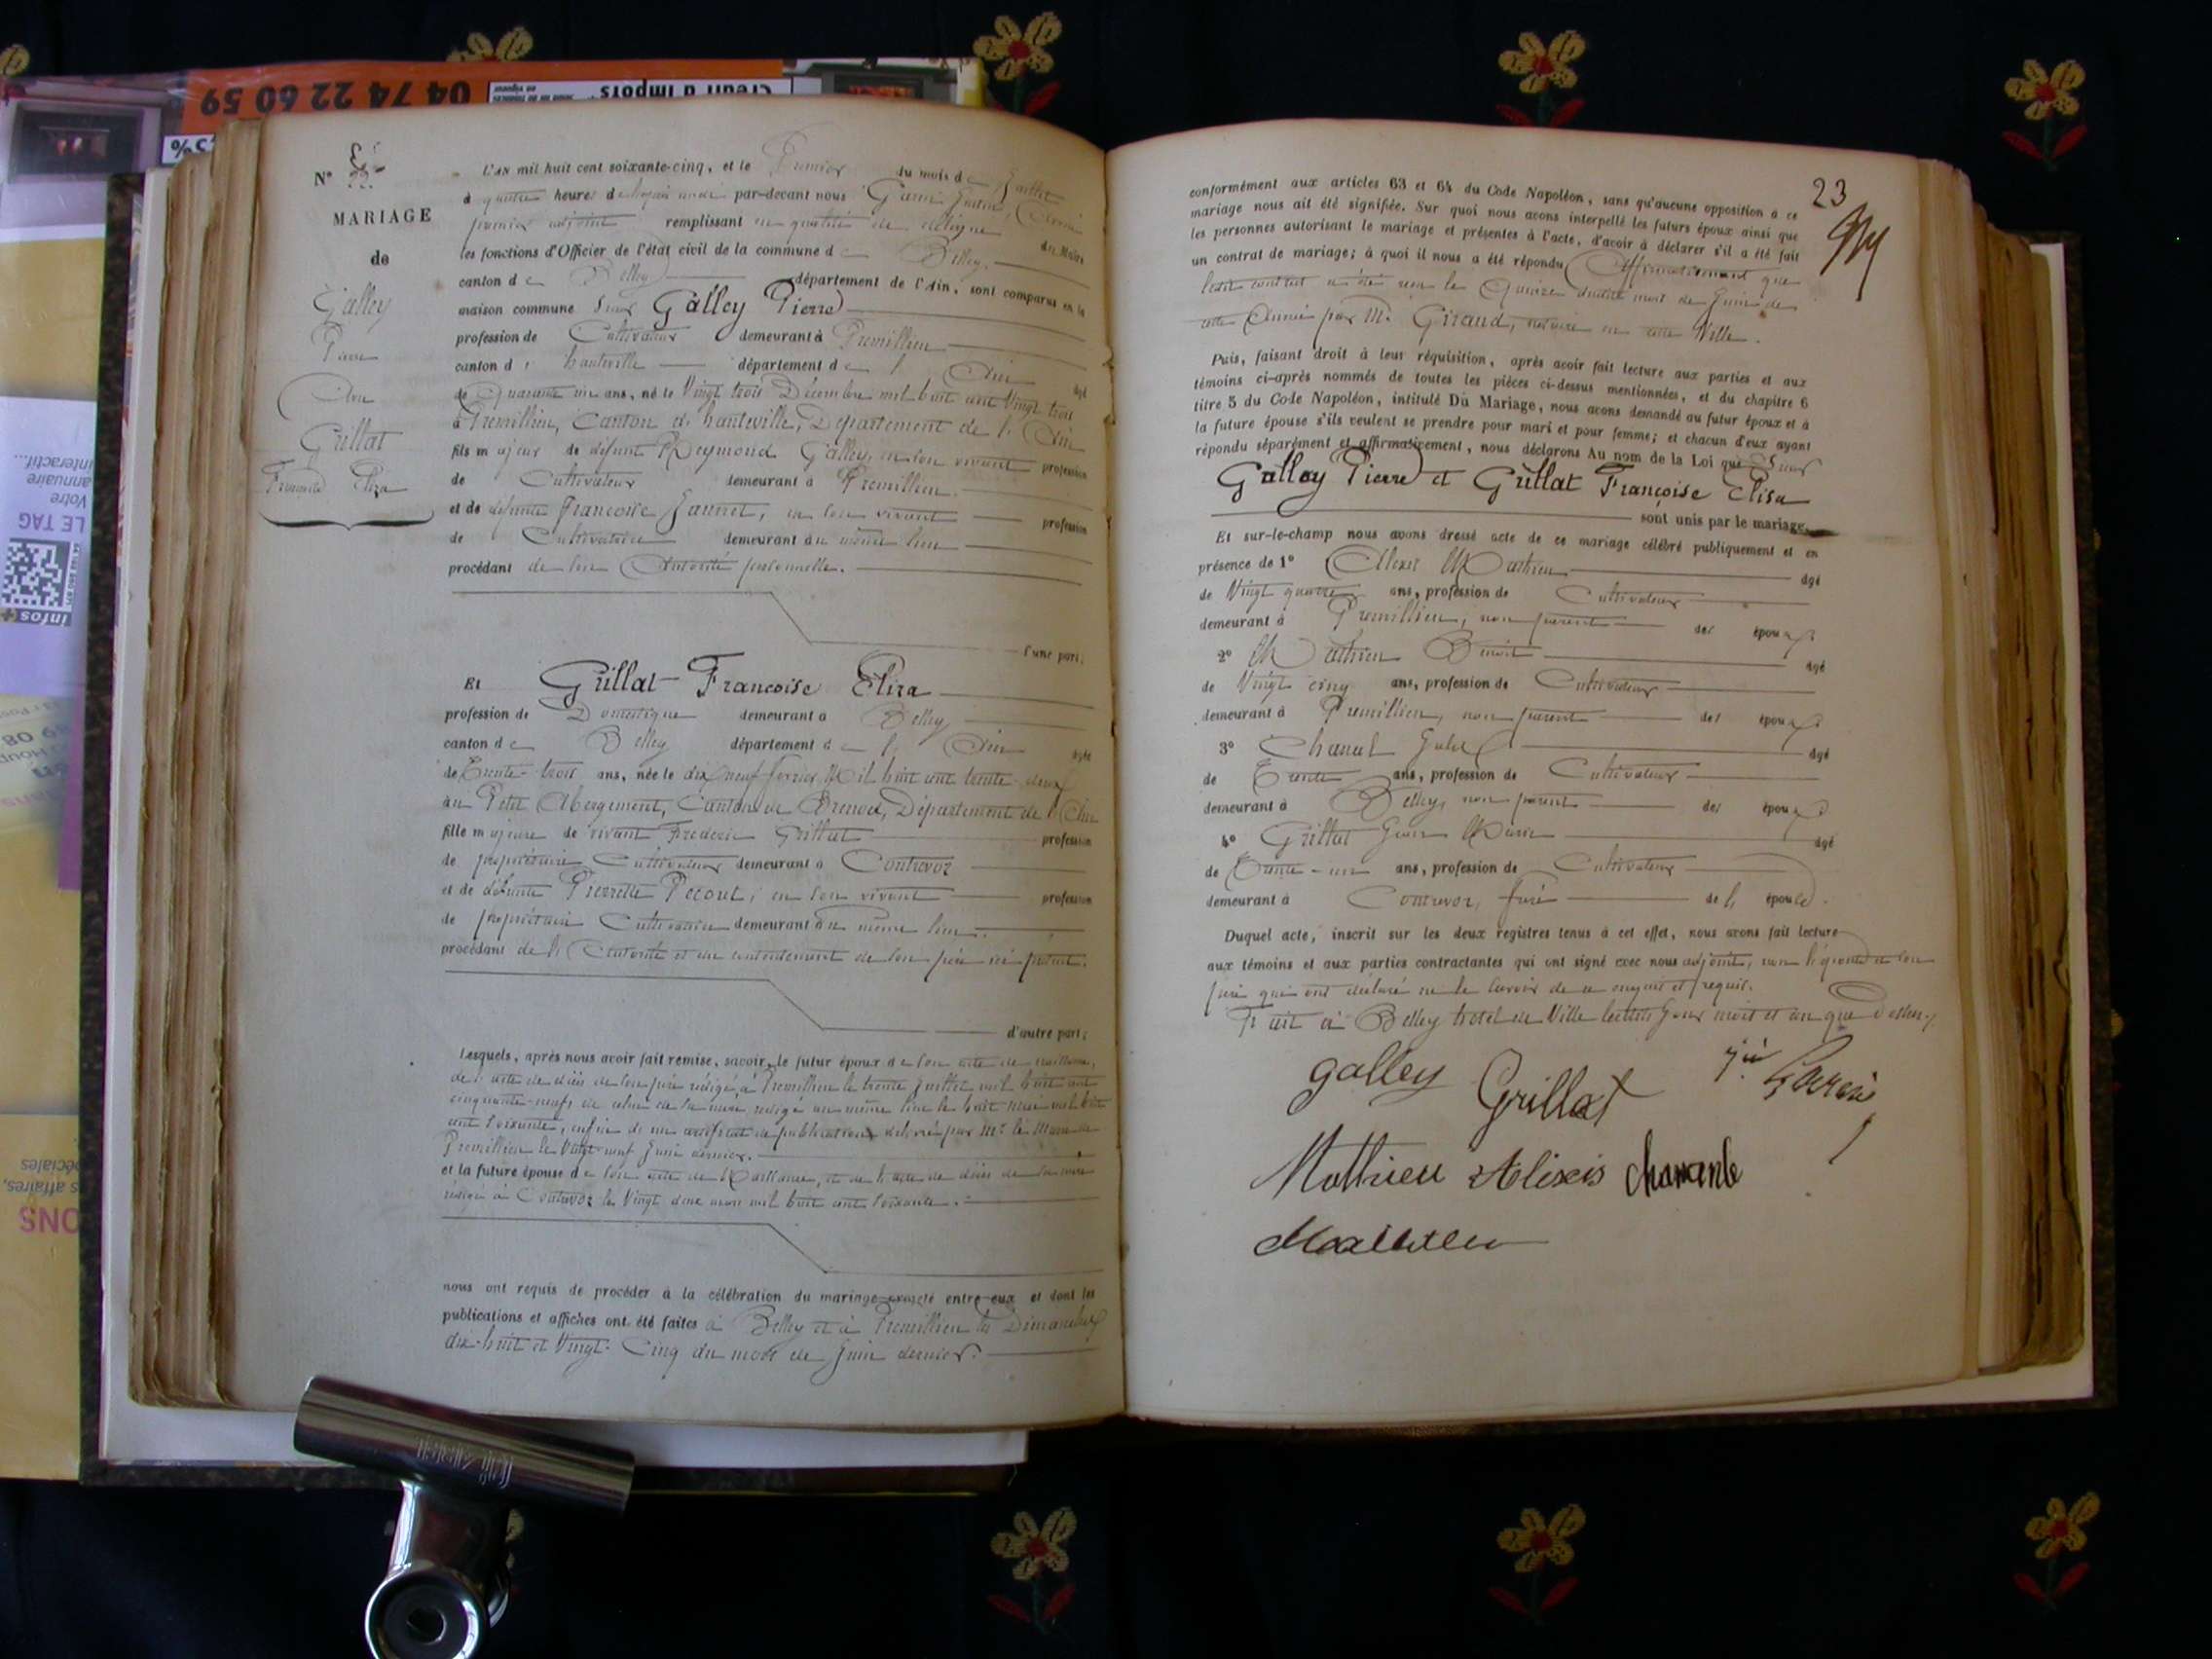 04 74 22 60 59
Crédit d'impôts
Votre
annuaire
interactif...
LE TAG
infos+
N°
MARIAGE
de
Galley
Pierre
Avec
Grillat
Françoise Eliza
L'AN mil huit cent soixante-cinq, et le Premier du mois de Juillet
à quatre heures de par-devant nous
premier adjoint remplissant en qualité de délégué du Maire
les fonctions d'Officier de l'état civil de la commune de Belley.
canton de Belley département de l'Ain, sont comparus en la
maison commune Sieur Galley Pierre
profession de Cultivateur demeurant à Premillieu
canton d' hauteville département de l'Ain âgé
de Quarante un ans, né le Vingt trois Décembre mil huit cent Vingt trois
à Premillieu, Canton d'hauteville, Département de l'Ain
fils majeur de défunt Reymond Galley, en son vivant profession
de Cultivateur demeurant à Premillieu.
et de défunte Françoise Jannet, en son vivant profession
de Cultivatrice demeurant au même lieu
procédant de son Autorité personnelle.
l'une part;
Et Grillat Françoise Eliza
profession de Domestique demeurant à Belley
canton de Belley département de l'Ain âgée
de Trente-trois ans, née le dix neuf février Mil huit cent trente deux
au Petit Abergement, Canton de Brenod, Département de l'Ain
fille majeure de vivant Frédéric Grillat profession
de propriétaire Cultivateur demeurant à Contrevoz
et de défunte Pierrette Pecout, en son vivant profession
de propriétaire Cultivatrice demeurant au même lieu.
procédant de l'Autorité et du consentement de son père ici présent.
d'autre part;
Lesquels, après nous avoir fait remise, savoir, le futur époux de son acte de naissance,
de l'acte de décès de son père rédigé à Premillieu le trente Juillet mil huit cent
cinquante-neuf, de celui de sa mère rédigé au même lieu le huit mai mil huit
cent soixante, enfin d'un certificat de publications délivré par Mr le Maire de
Premillieu le Vingt neuf Juin dernier.
et la future épouse de son acte de Naissance, et de l'acte de décès de sa mère
rédigé à Contrevoz le Vingt deux mil huit cent soixante.
nous ont requis de procéder à la célébration du mariage projeté entre eux et dont les
publications et affiches ont été faites à Belley et à Premillieu les Dimanches
dix-huit et Vingt-Cinq du mois de Juin dernier.
23
conformément aux articles 63 et 64 du Code Napoléon, sans qu'aucune opposition à ce
mariage nous ait été signifiée. Sur quoi nous avons interpellé les futurs époux ainsi que
les personnes autorisant le mariage et présentes à l'acte, d'avoir à déclarer s'il a été fait
un contrat de mariage; à quoi il nous a été répondu Affirmativement que
ledit contrat a été reçu le Quinze dudit mois de Juin de
cette Année par Me Giraud, notaire en cette Ville.
Puis, faisant droit à leur réquisition, après avoir fait lecture aux parties et aux
témoins ci-après nommés de toutes les pièces ci-dessus mentionnées, et du chapitre 6
titre 5 du Code Napoléon, intitulé Du Mariage, nous avons demandé au futur époux et à
la future épouse s'ils veulent se prendre pour mari et pour femme; et chacun d'eux ayant
répondu séparément et affirmativement, nous déclarons Au nom de la Loi que Sieur
Galley Pierre et Grillat Françoise Elisa
sont unis par le mariage.
Et sur-le-champ nous avons dressé acte de ce mariage célébré publiquement et en
présence de 1° Alexis Mathieu âgé
de Vingt quatre ans, profession de Cultivateur
demeurant à Premillieu, non parent des époux
2° Mathieu Benoit âgé
de Vingt cinq ans, profession de Cultivateur
demeurant à Premillieu, non parent des époux
3° Chanel âgé
de Trente ans, profession de Cultivateur
demeurant à Belley, non parent des époux
4° Grillat Jean Marie âgé
de Trente-un ans, profession de Cultivateur
demeurant à Contrevoz, frère de l'épouse.
Duquel acte, inscrit sur les deux registres tenus à cet effet, nous avons fait lecture
aux témoins et aux parties contractantes qui ont signé avec nous adjoint, non l'épouse et son
père qui ont déclaré ne le savoir de ce enquis et requis.
Fait à Belley hotel de Ville lesdits Jour mois et an que Dessus.
galley
Grillat
Mathieu Alixis
Mathieu